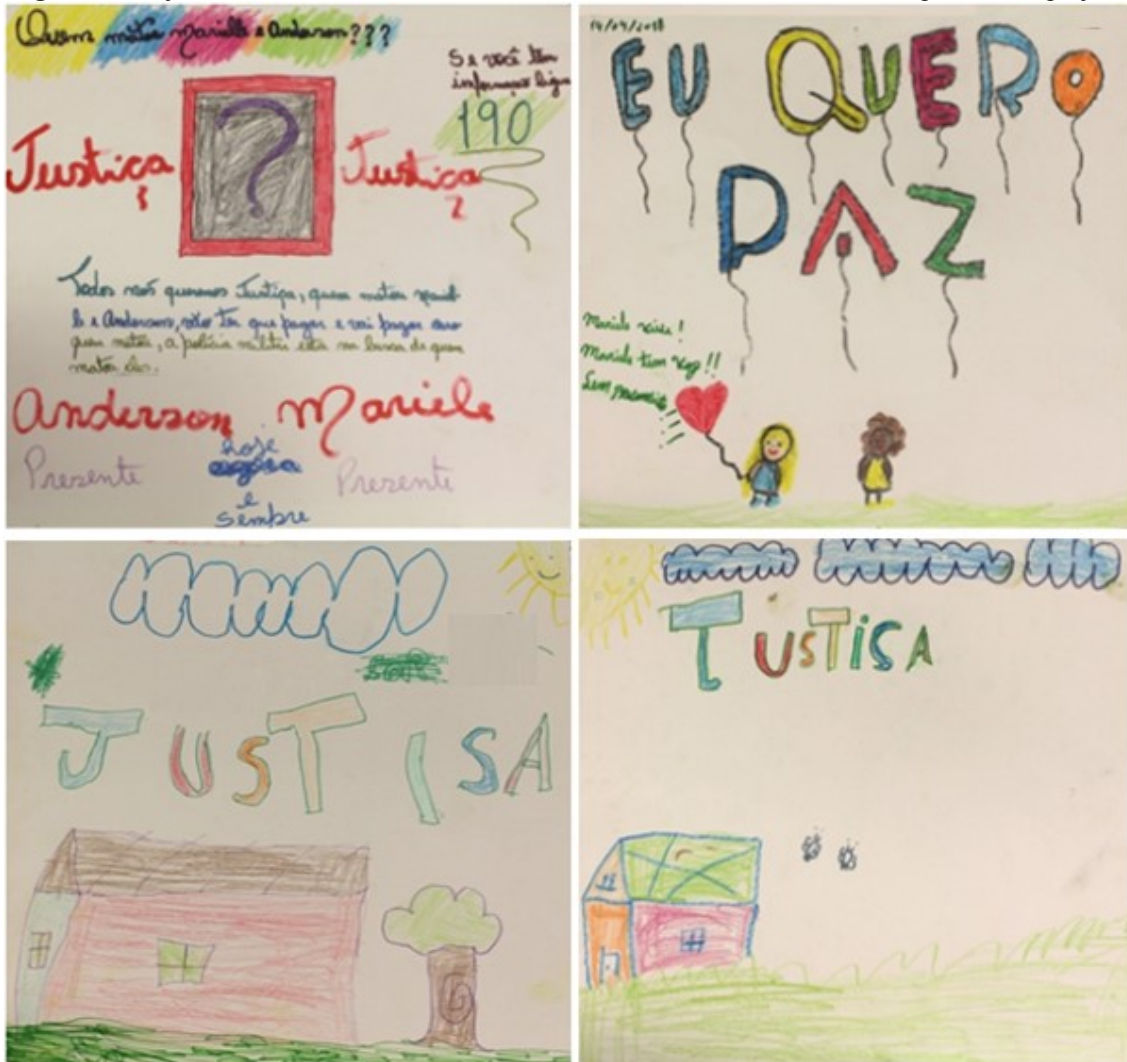 Quem matou Marielle e Anderson???
Se você tem
informação ligue
190
Justiça ?
Justiça
Todos nós queremos Justiça, quem matou
e Anderson, vão ter que pagar e vai pagar caro
quem matou, a polícia militar está em busca de quem
matou eles.
Anderson Mariele
Presente hoje Presente
e
sempre
14/09/2018
EU QUERO
PAZ
Mariele vive!
Mariele tem voz!!
JUSTISA
JUSTISA